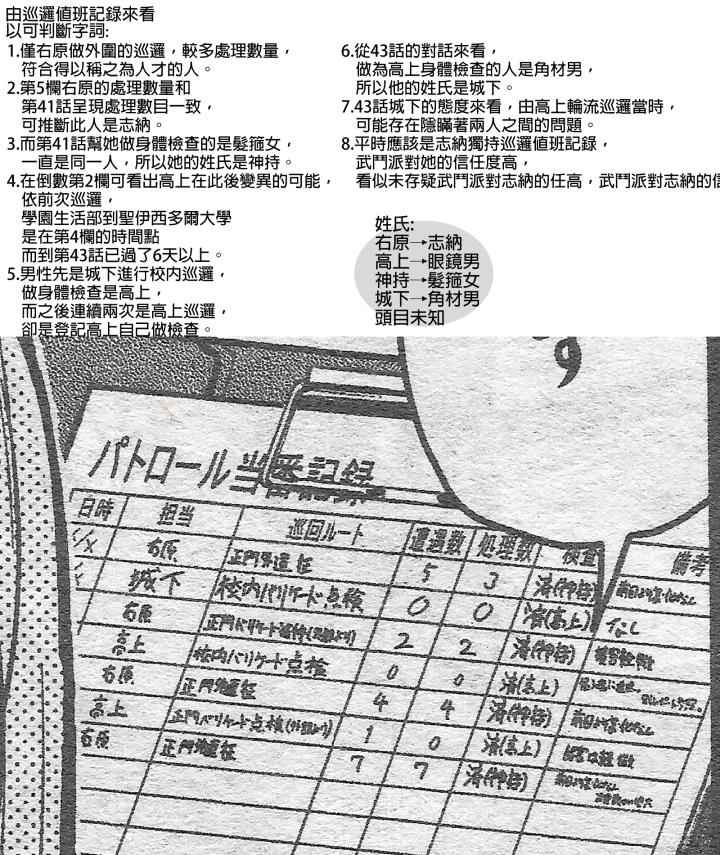 由巡邏値班記錄來看
以可判斷字詞:
1.僅右原做外圍的巡邏，較多處理數量，
符合得以稱之為人才的人。
2.第5欄右原的處理數量和
第41話呈現處理數目一致，
可推斷此人是志納。
3.而第41話幫她做身體檢查的是髮箍女，
一直是同一人，所以她的姓氏是神持。
4.在倒數第2欄可看出高上在此後變異的可能，
依前次巡邏，
學園生活部到聖伊西多爾大學
是在第4欄的時間點
而到第43話已過了6天以上。
5.男性先是城下進行校内巡邏，
做身體檢查是高上，
而之後連續兩次是高上巡邏，
卻是登記高上自己做檢查。
6.從43話的對話來看，
做為高上身體檢查的人是角材男，
所以他的姓氏是城下。
7.43話城下的態度來看，由高上輪流巡邏當時，
可能存在隱瞞著兩人之間的問題。
8.平時應該是志納獨持巡邏值班記錄，
武鬥派對她的信任度高，
看似未存疑武鬥派對志納的任高，武鬥派對志納的信
姓氏:
右原→志納
高上→眼鏡男
神持→髮箍女
城下→角材男
頭目未知
パトロール当番記録
日時 担当 巡回ルート 遭遇数 処理数 検査 備考
右原 正門外 5 3 済(神持)
城下 校内バリケード点検 0 0 済(高上) なし
右原 正門バリケード 2 2 済(神持)
高上 校内バリケード点検 0 0 済(高上)
右原 正門外 4 4 済(神持)
高上 正門バリケード点検(外側より) 1 0 済(高上)
右原 正門外 7 7 済(神持)